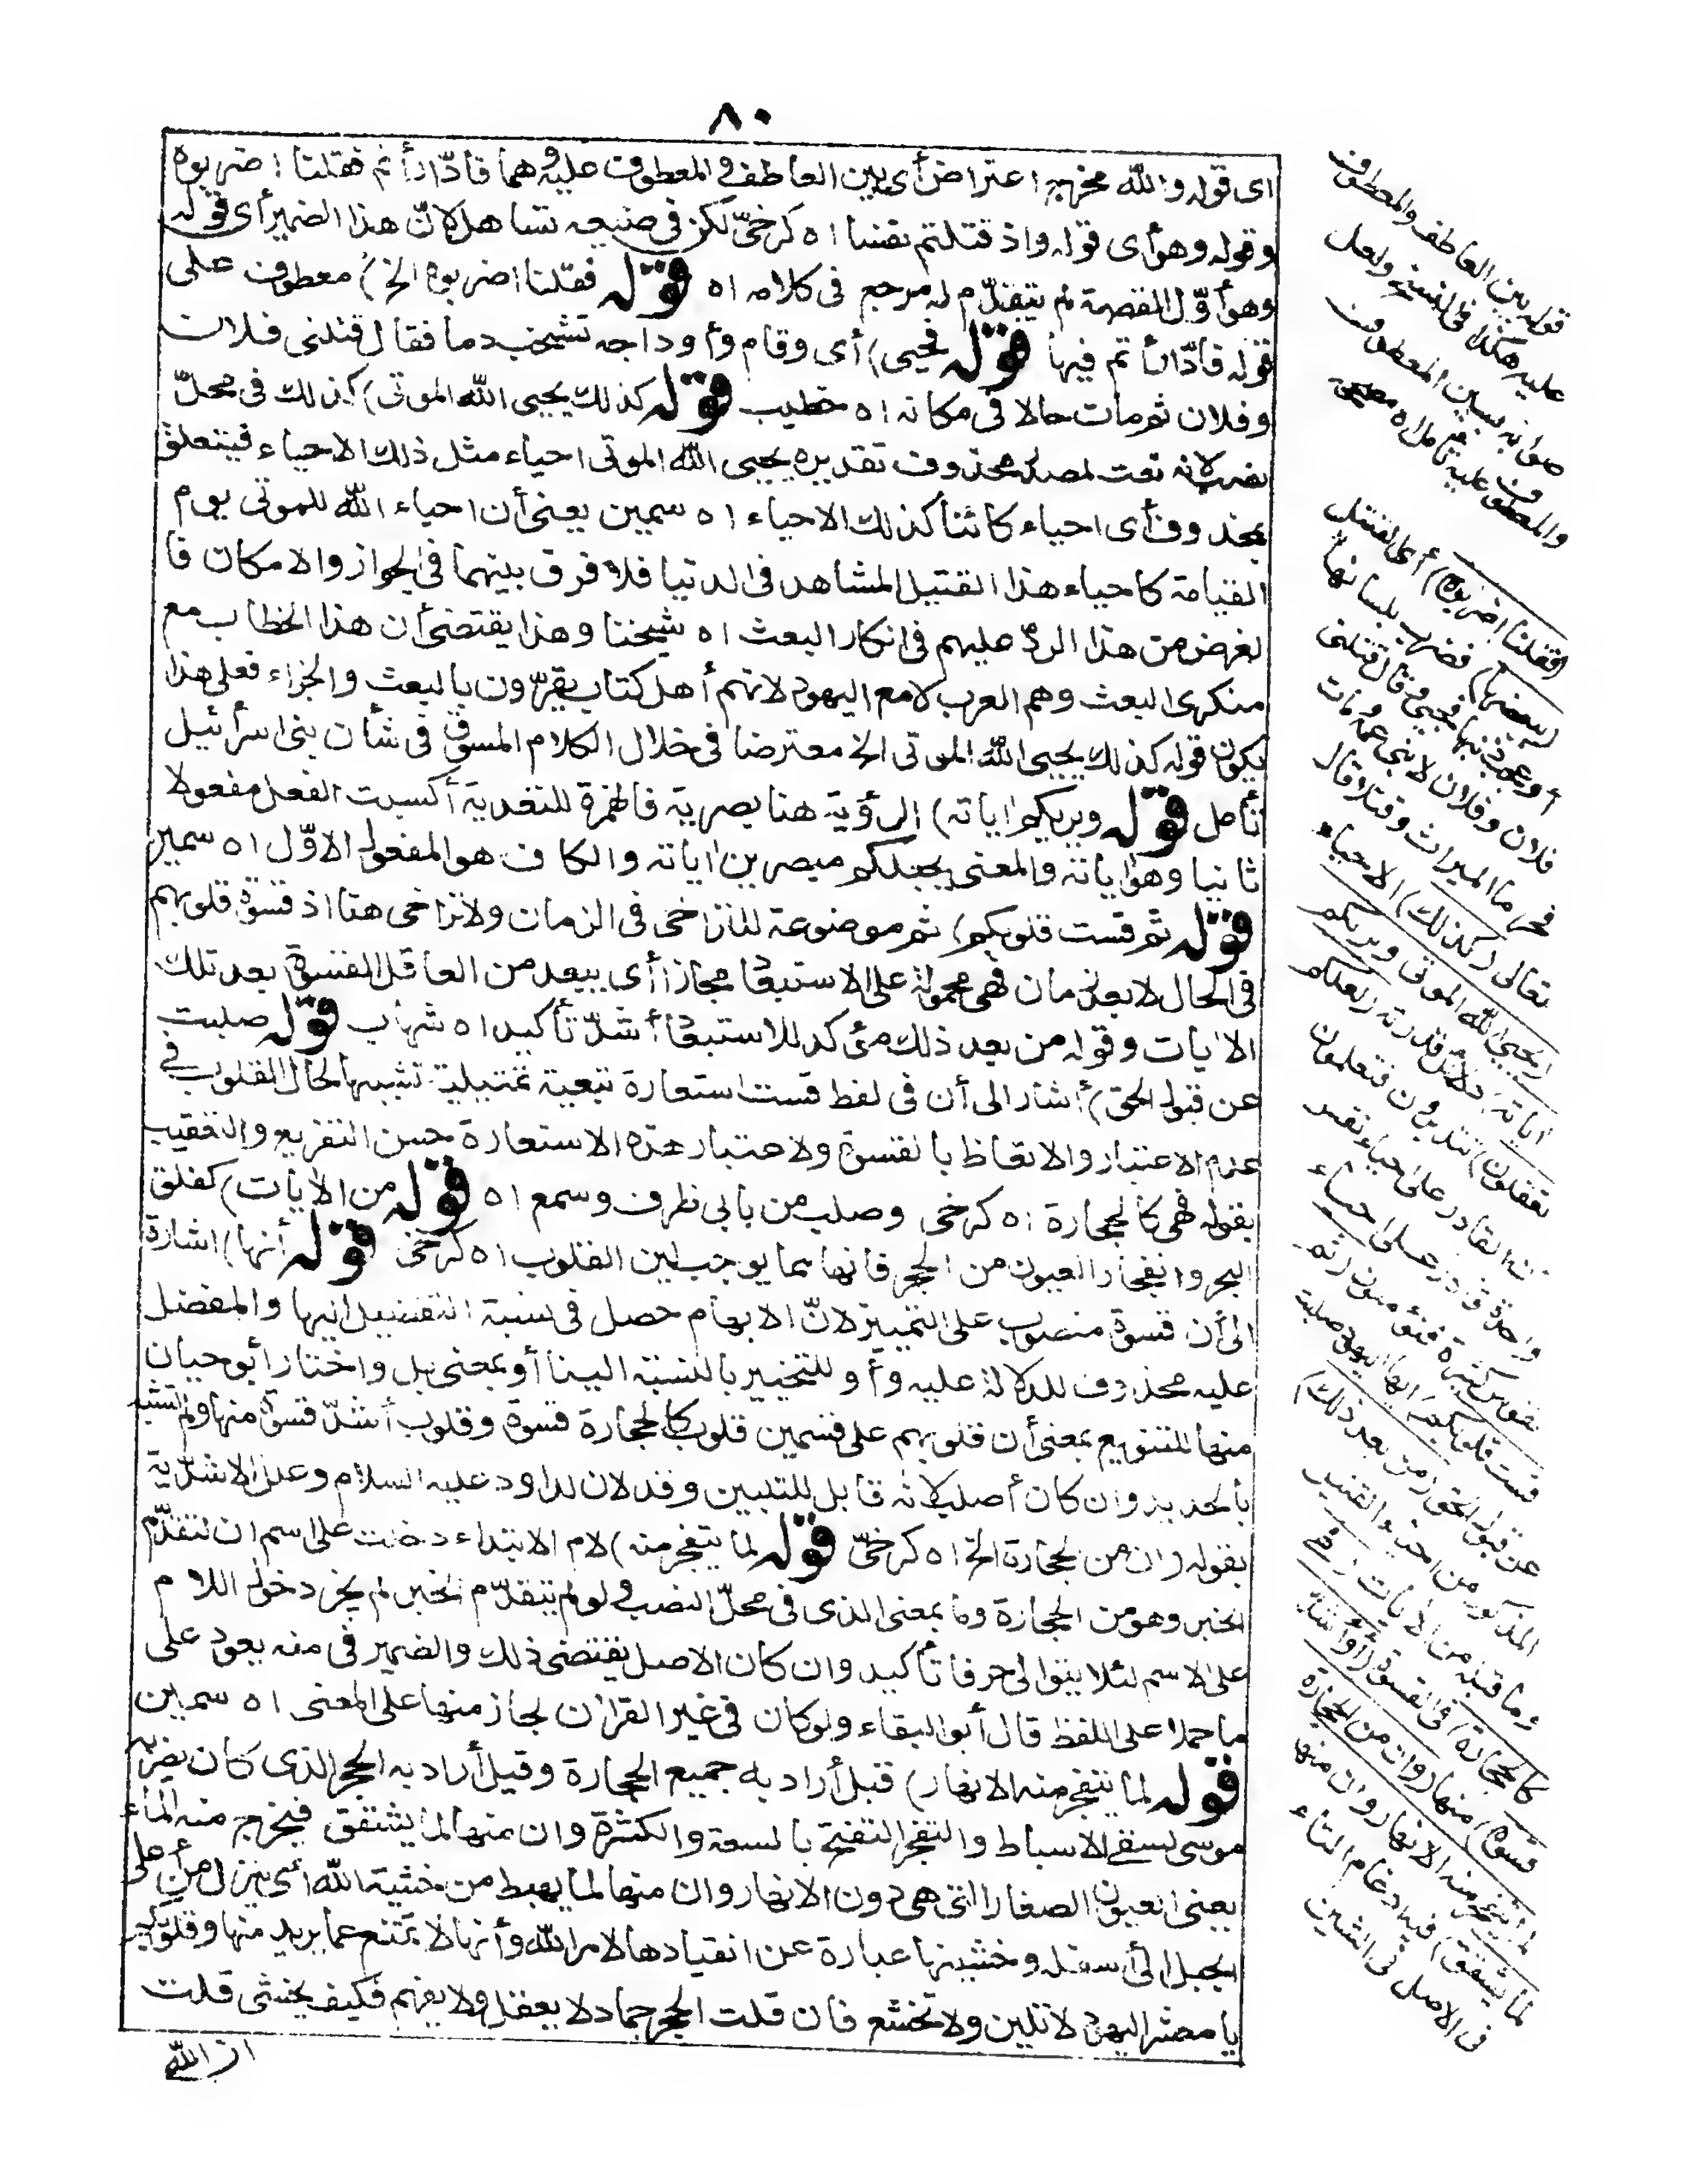 ٨٠
اى قوله والله مخرج اعتراض أى بين العاطف والمعطوف عليه وهما فادّارأتم فقلنا اضربوه
وقوله وهو أى قوله واذ قتلتم نفسا اه كرخىّ لكن فى صنيعه تساهل لانّ هذا الضمير أى قوله
وهو أوّل القصة لم يتقدّم له مرجع فى كلامه اه قوله فقلنا اضربوه الخ) معطوف على
قوله فادّارأتم فيها قوله فحيى) أى وقام وأوداجه تشخب دما فقال قتلنى فلان
وفلان ثم مات حالا فى مكانه اه خطيب قوله كذلك يحيى الله الموتى) كذلك فى محلّ
نصب لانه نعت لمصدر محذوف تقديره يحيى الله الموتى احياء مثل ذلك الاحياء فيتعلق
بمحذوف أى احياء كائنا كذلك الاحياء اه سمين يعنى أن احياء الله للموتى يوم
القيامة كاحياء هذا القتيل المشاهد فى الدنيا فلا فرق بينهما فى الجواز والامكان فا
لغرض من هذا الردّ عليهم فى انكار البعث اه شيخنا وهذا يقتضى أن هذا الخطاب مع
منكرى البعث وهم العرب لا مع اليهود لانهم أهل كتاب يقرّون بالبعث والجزاء فعلى هذا
يكون قوله كذلك يحيى الله الموتى الخ معترضا فى خلال الكلام المسوق فى شأن بنى اسرائيل
تأمل قوله ويريكم اياته) الرؤية هنا بصرية فالهمزة للتعدية أكسبت الفعل مفعولا
ثانيا وهو اياته والمعنى يجعلكم مبصرين اياته والكاف هو المفعول الاوّل اه سمين
قوله ثم قست قلوبكم) ثم موضوعة للتراخى فى الزمان ولا تراخى هنا اذ قسوة قلوبهم
فى الحال لا بعد زمان فهى محمولة على الاستبعاد مجازا أى يبعد من العاقل القسوة بعد تلك
الايات وقوله من بعد ذلك مؤكد للاستبعاد أشدّ تأكيد اه شهاب قوله صلبت
عن قبول الحق) أشار الى أن فى لفظ قست استعارة تبعية تمثيلية تشبيها لحال القلوب فى
عدم الاعتبار والاتعاظ بالقسوة ولاعتبار هذه الاستعارة حسن التفريع والتعقيب
بقوله فهى كالحجارة اه كرخى وصلب من بابى ظرف وسمع اه قوله من الايات) كفلق
البحر وانفجار العيون من الحجر فانها مما يوجب لين القلوب اه كرخى قوله أنها) اشارة
الى أن قسوة منصوب على التمييز لانّ الابهام حصل فى نسبة التفضيل اليها والمفضل
عليه محذوف للدلالة عليه وأو للتخيير بالنسبة الينا أو بمعنى بل واختار أبو حيان
منها للتنويع بمعنى أن قلوبهم على قسمين قلوب كالحجارة قسوة وقلوب أشدّ قسوة منها ولم تشبه
بالحديد وان كان أصلب لانه قابل للتليين وقد لان لداود عليه السلام وعلل الاشدّية
بقوله وان من الحجارة الخ اه كرخىّ قوله لما يتفجر منه) لام الابتداء دخلت على اسم ان لتقدّم
الخبر وهو من الحجارة وما بمعنى الذى فى محلّ النصب ولو لم يتقدّم الخبر لم يجز دخول اللام
على الاسم لئلا يتوالى حرفا تأكيد وان كان الاصل يقتضى ذلك والضمير فى منه يعود على
ما حملا على اللفظ قال أبو البقاء ولو كان فى غير القران لجاز منها على المعنى اه سمين
قوله لما يتفجر منه الانهار) قيل أراد به جميع الحجارة وقيل أراد به الحجر الذى كان يضرب
موسى لسقى الاسباط والتفجر التفتح بالسعة والكثرة وان منها لما يشقق فيخرج منه الماء
يعنى العيون الصغار التى هى دون الانهار وان منها لما يهبط من خشية الله أى ينزل من أعلى
الجبل الى أسفله وخشيتها عبارة عن انقيادها لامر الله وأنها لا تمتنع عما يريد منها وقلوبكم
يا معشر اليهود لا تلين ولا تخشع فان قلت الحجر جماد لا يعقل ولا يفهم فكيف يخشى قلت
ان الله
قوله بين العاطف والمعطوف
عليه هكذا فى النسخ ولعل
صوابه بين المعطوف
والمعطوف عليه تأمل اه
(فقلنا اضربوه) أى القتيل
(ببعضها) فضرب بلسانها
أو عجب ذنبها فحيى وقال قتلنى
فلان وفلان لابنى عمه ومات
فحرما الميراث وقتلا قال
تعالى (كذلك) الاحياء
(يحيى الله الموتى ويريكم
اياته) دلائل قدرته (لعلكم
تعقلون) تتدبرون فتعلمون
أن القادر على احياء نفس
واحدة قادر على احياء
نفوس كثيرة فتؤمنون (ثم
قست قلوبكم) أيها اليهود صلبت
عن قبول الحق (من بعد ذلك)
المذكور من احياء القتيل
وما قبله من الايات (فهى
كالحجارة) فى القسوة (أو أشدّ
قسوة) منها (وان من الحجارة
لما يتفجر منه الانهار وان منها
لما يشقق) فيه ادغام التاء
فى الاصل فى الشين